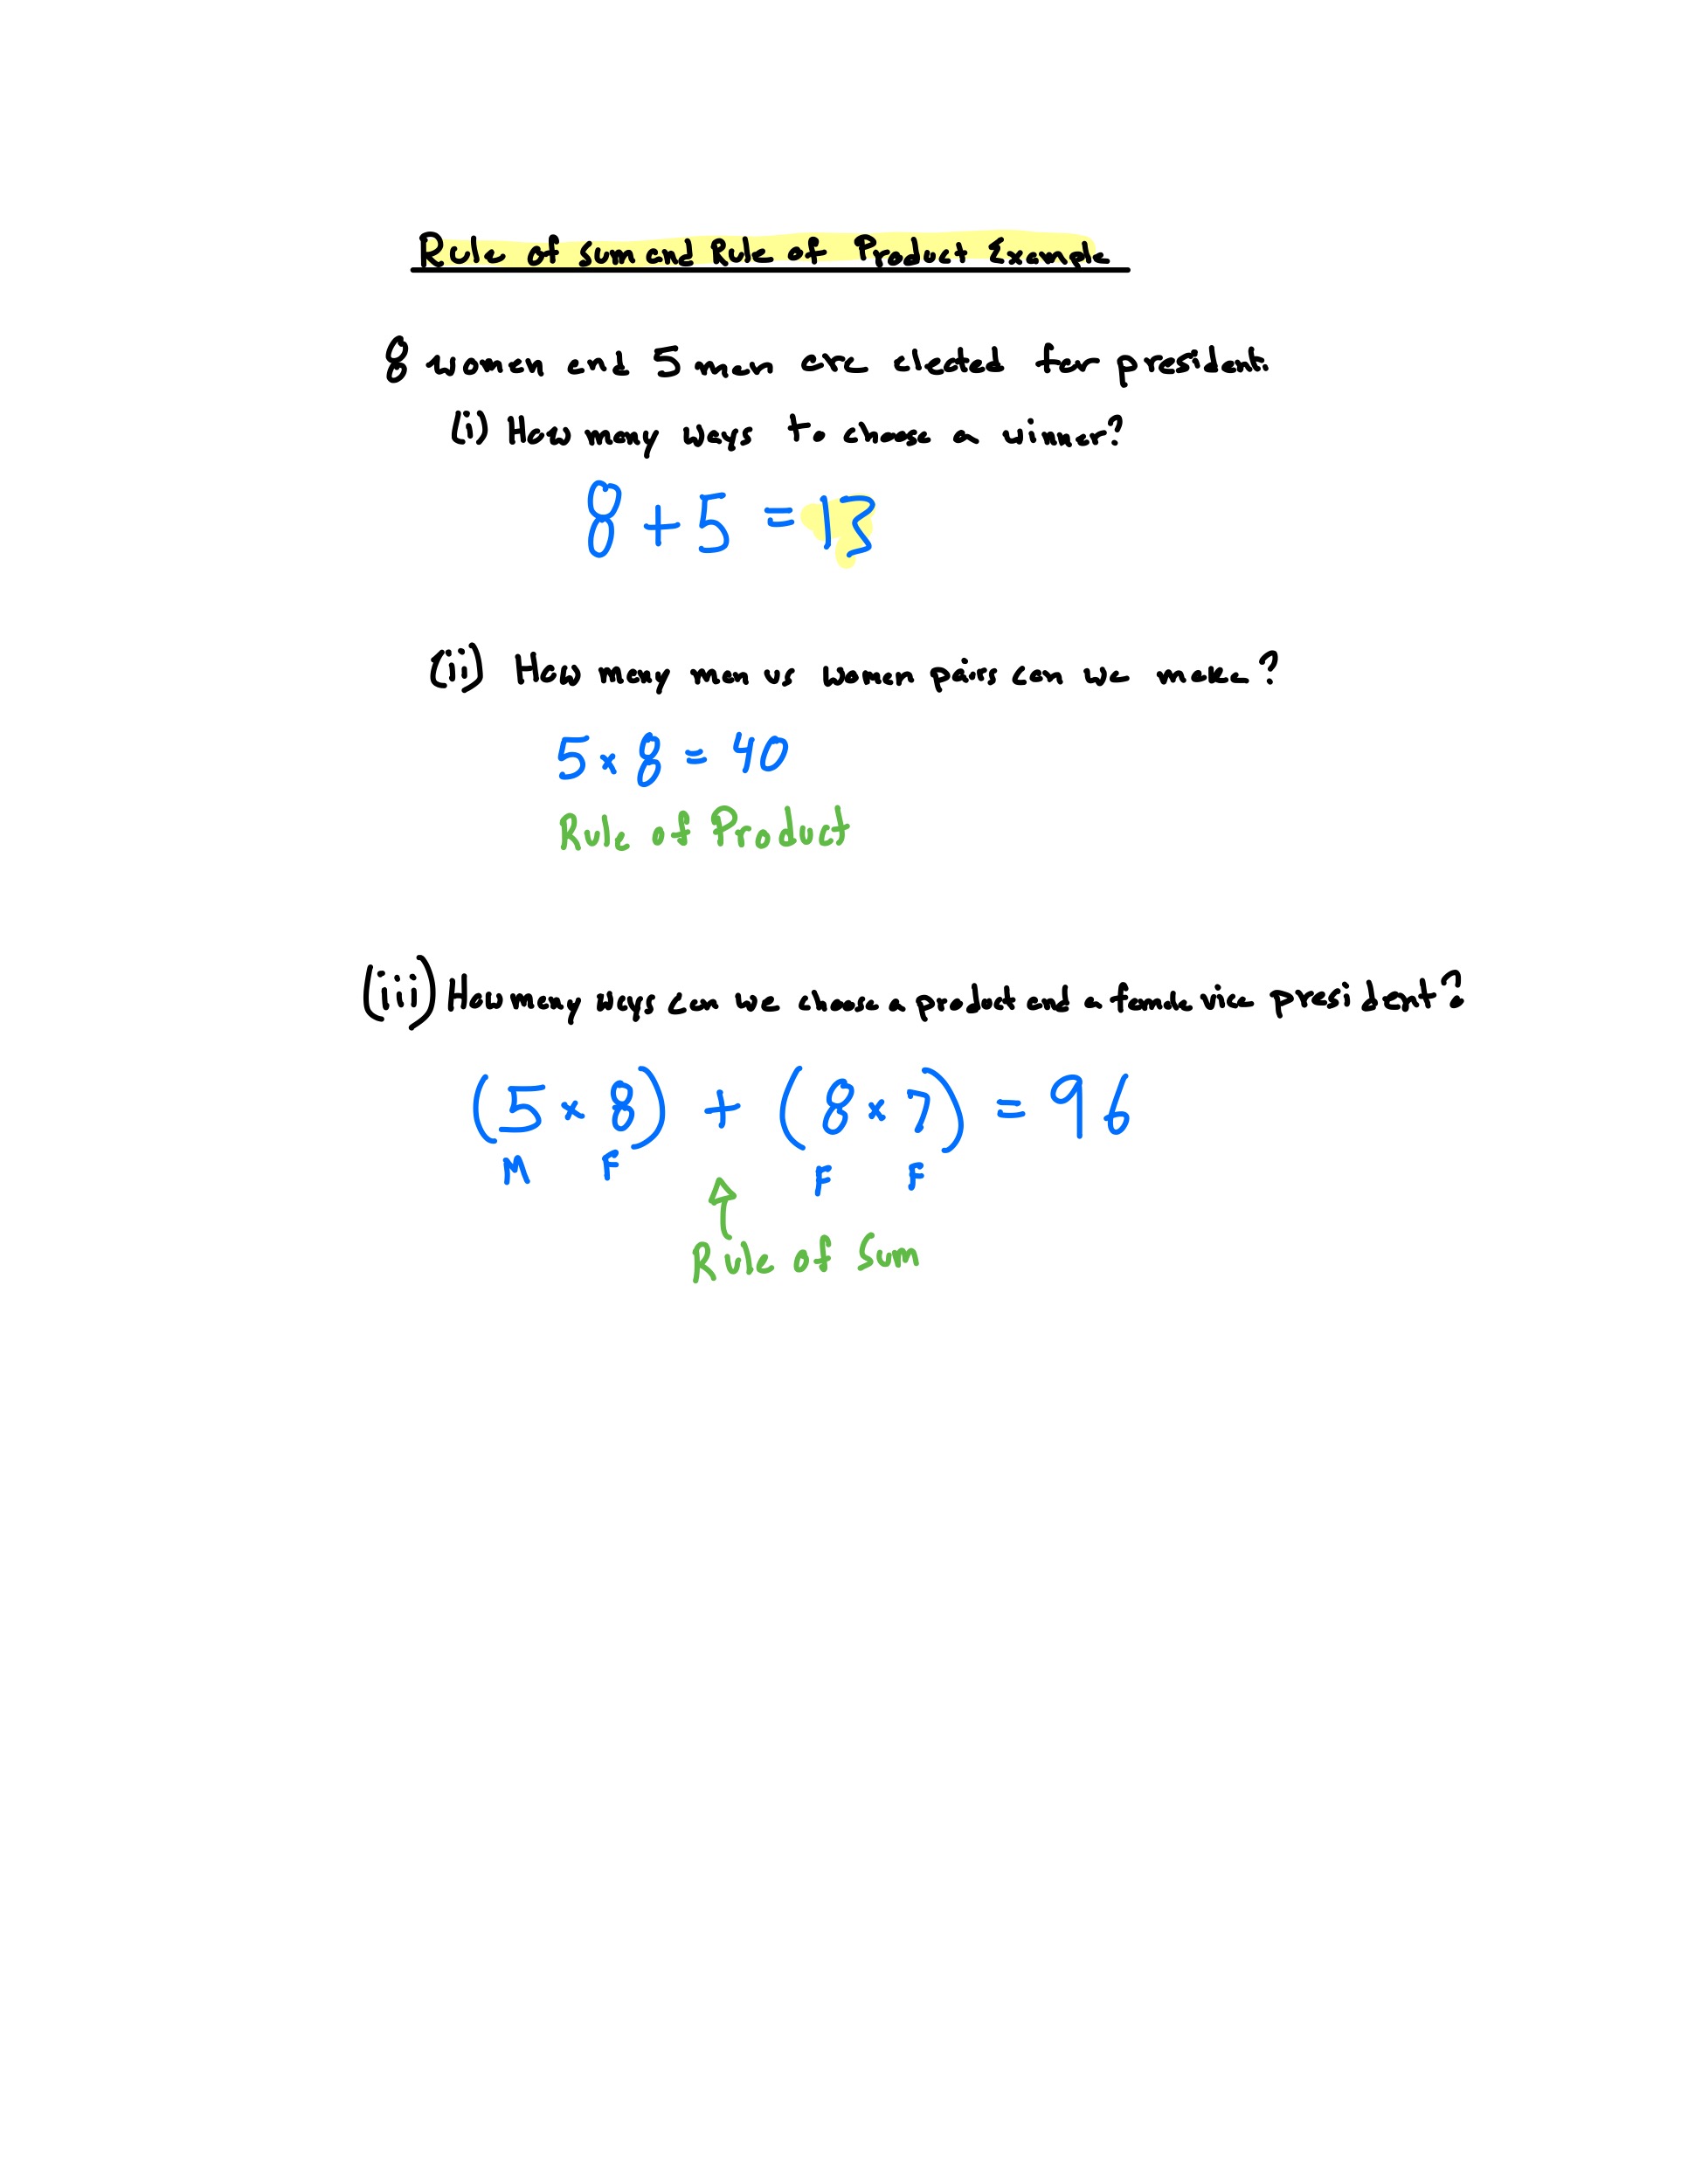 Rule of Sum and Rule of Product Example
8 women and 5 men are elected for president.
(i) How many ways to choose a winner?
8 + 5 = 13
(ii) How many men vs women pairs can we make?
5 × 8 = 40
Rule of Product
(iii) How many ways can we choose a product and a female vice president?
(5 × 8) + (8 × 7) = 96
M F F F
Rule of Sum